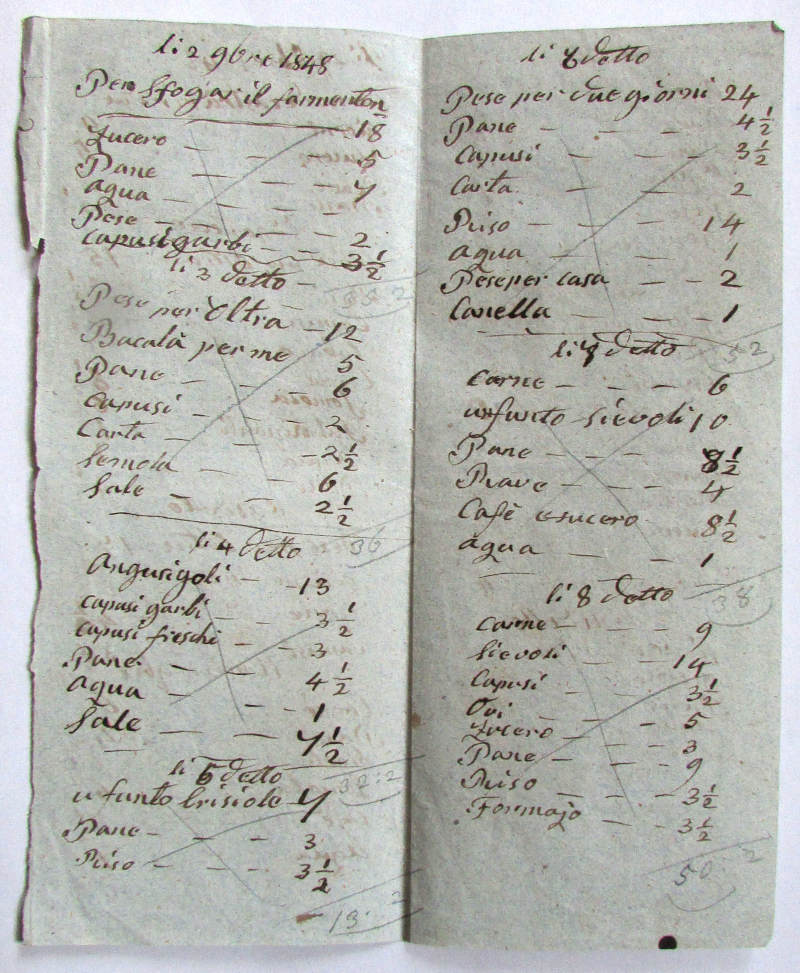 li 2 9bre 1848
Per Sfogar il formenton
18
Zucero — — — 5
Pane — — — 7
agua — — —
Pese — — — 2
Capusi garbi — — 3 1/2
33:2
li 3 detto
Pese per Oltra — 12
Bacalà per me 5
Pane — — — 6
Capusi — — — 2
Carta — — — 2 1/2
Semola — — 6
Sale — — 2 1/2
36
li 4 detto
Angusigoli — — 13
capusi garbi — 3 1/2
capusi freschi — 3
Pane — — 4 1/2
agua — — 1
Sale — — — 7 1/2
32:2
li 5 detto
un funto brisiole 7
Pane — — — 3
Riso — — — 3 1/2
13:2
li 6 detto
Pese per due giorni 24
Pane — — — 4 1/2
Capusi — — — 3 1/2
Carta — — 2
Riso — — — 14
agua — — — 1
Pese per casa — — 2
Canella — — — 1
52
li 7 detto
Carne — — — 6
un funto sievoli 10
Pane — — — 8 1/2
— — — 4
Cafè e sucero 8 1/2
agua — — 1
38
li 8 detto
Carne — — — 9
Sievoli — — 14
Capusi — — — 3 1/2
Ovi — — — 5
Zucero — — — 3
Pane — — — 9
Riso — — — 3 1/2
Formajo — — — 3 1/2
50:2